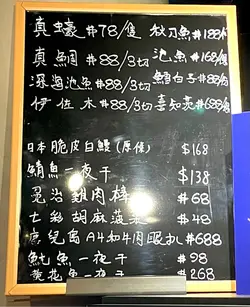 真蠔 $78/隻 秋刀魚 $188/
真鯛 $88/3切 池魚 $168/隻
深海池魚 $88/3切 鱈白子 $88/
伊佐木 $88/3切 喜知魚 $688/
日本脆皮白鰻 (原條) $168
鯖魚一夜干 $138
忍沼雞肉棒 $68
七彩胡麻菠菜 $48
鹿兒島A4和牛肉眼扒 $688
魷魚一夜干 $98
黃花魚一夜干 $268